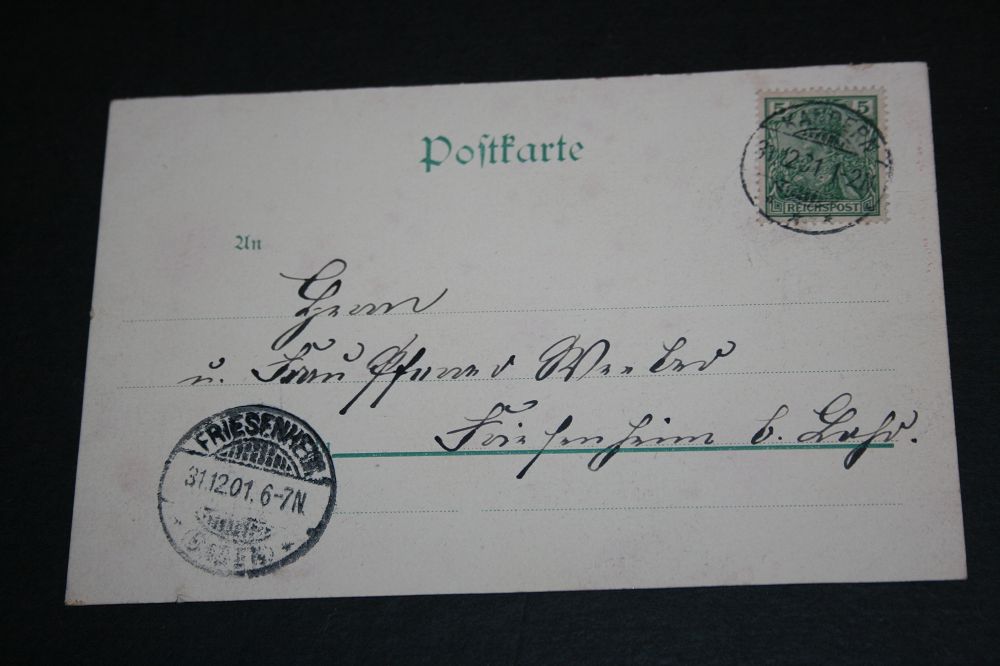 Postkarte
5 5
KANDERN
31.12.01. 1-2N
REICHSPOST
An
Herrn
u. Frau Pfarrer
Friesenheim b. Lahr.
FRIESENHEIM
31.12.01. 6-7N.
* (BADEN) *